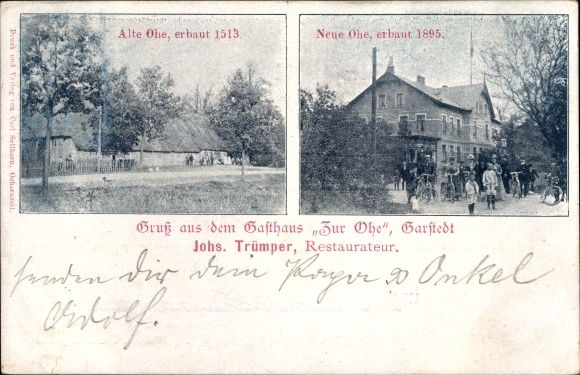 Alte Ohe, erbaut 1513.
Neue Ohe, erbaut 1895.
Druck und Verlag von Carl
Gruß aus dem Gasthaus „Zur Ohe", Garstedt
Johs. Trümper, Restaurateur.
senden Dir dein Papa & Onkel
Adolf.